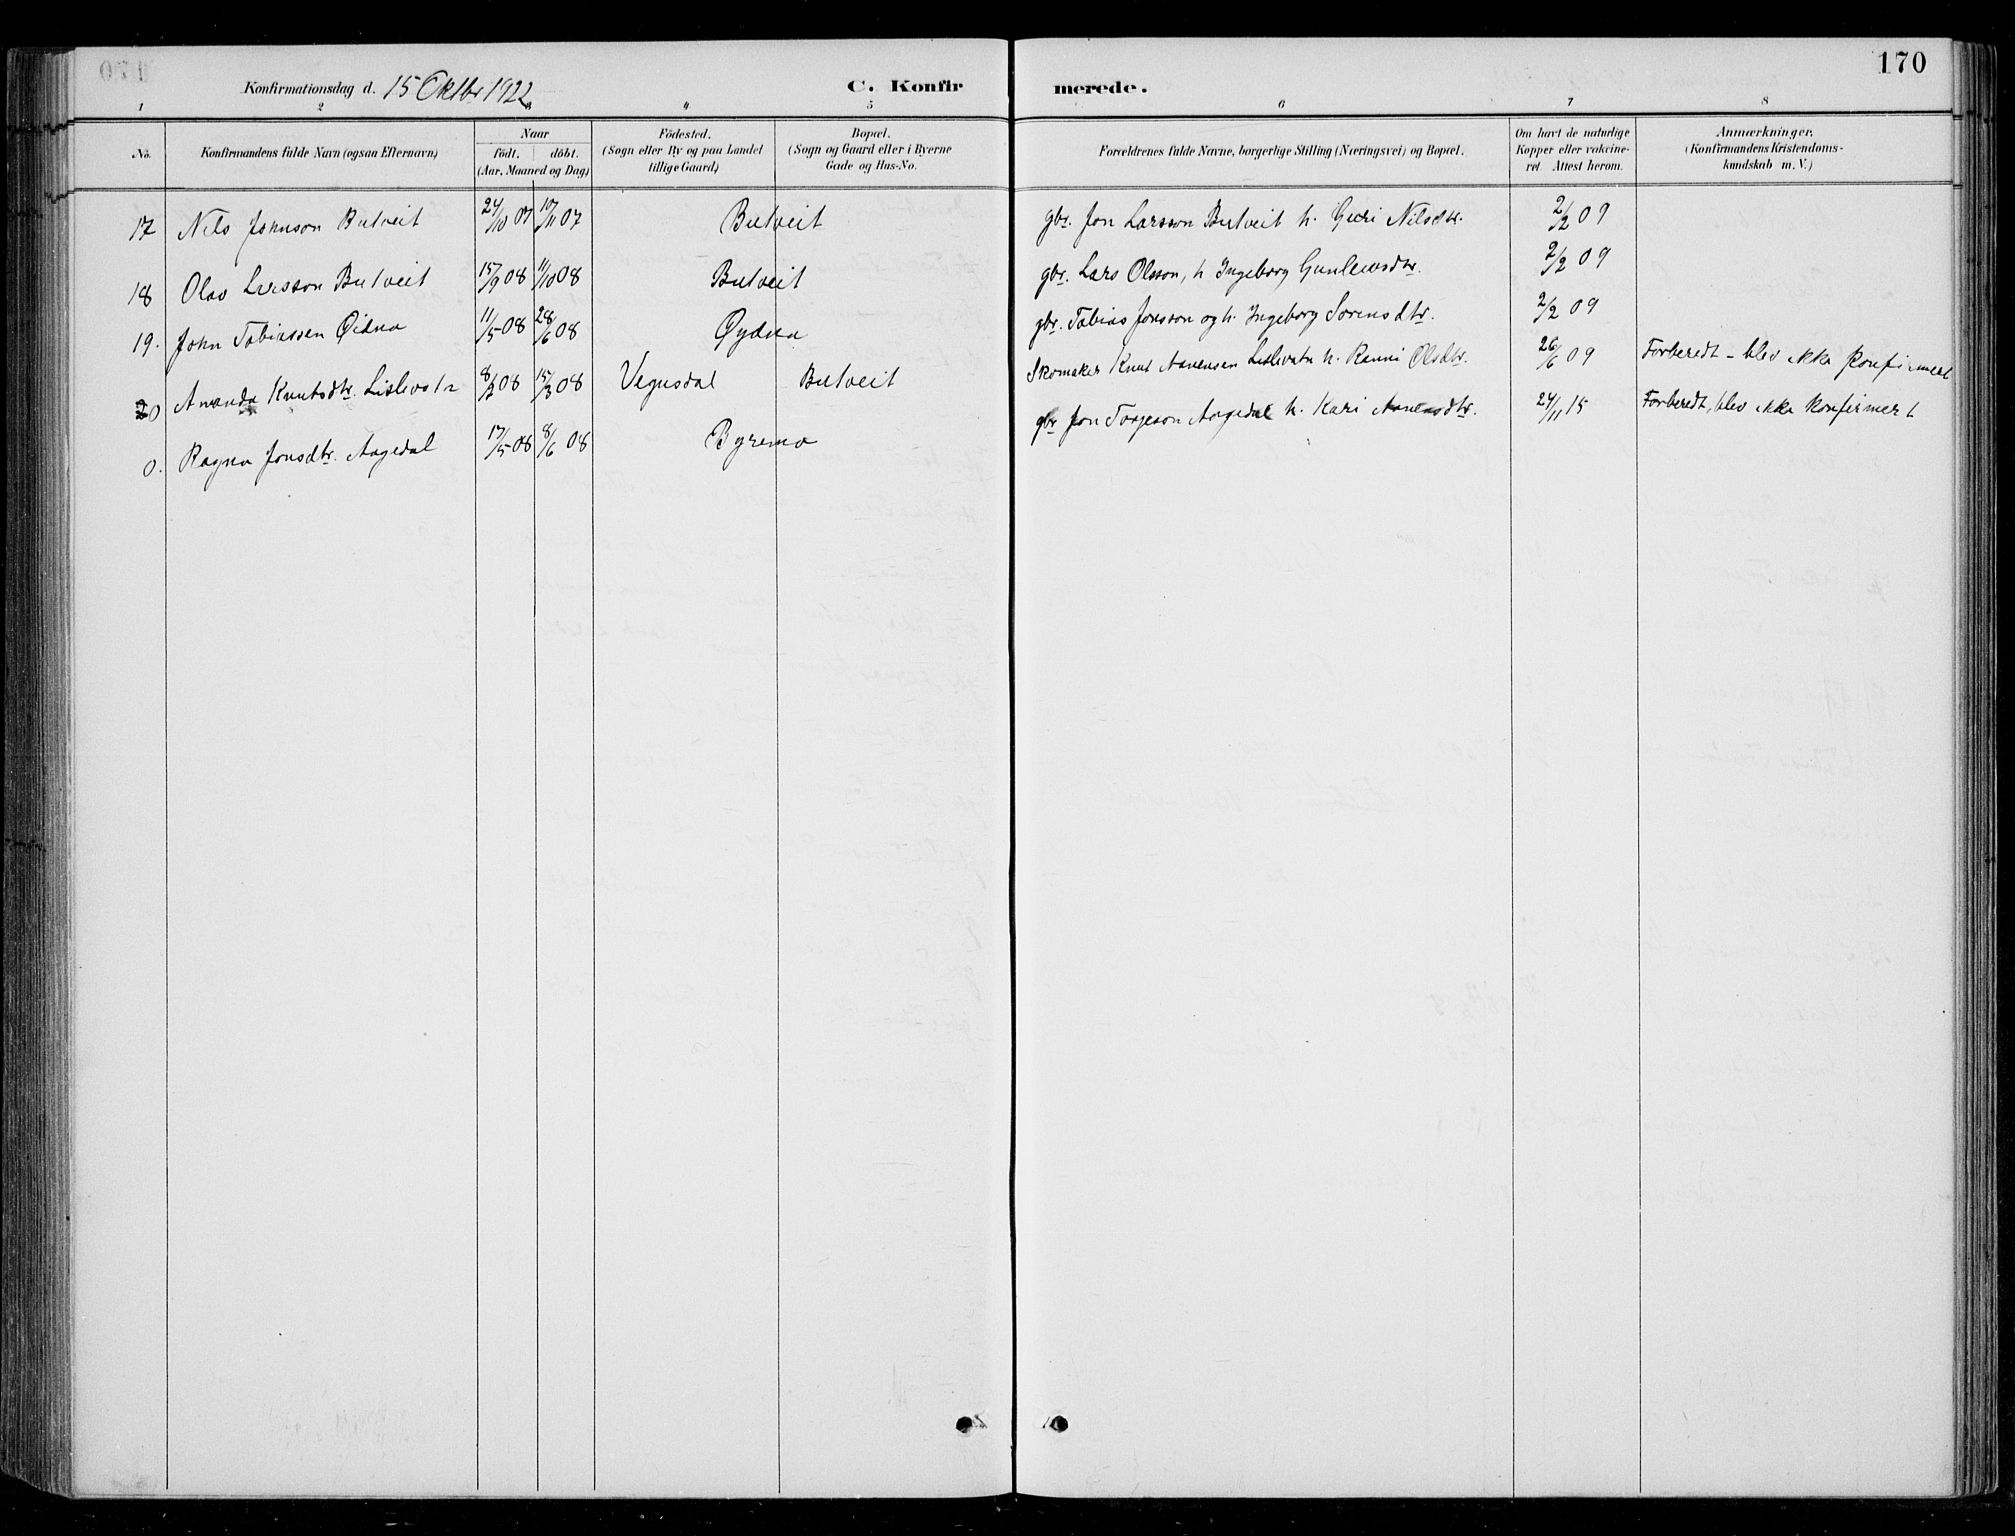 170
Konfirmationsdag d. 15 Oktbr 1922
C. Konfirmerede.
1 2 3 4 5 6 7 8
No.
Konfirmandens fulde Navn (ogsaa Efternavn)
Naar
födt. döbt.
(Aar, Maaned og Dag)
Födested.
(Sogn eller By og paa Landet
tillige Gaard)
Bopæl.
(Sogn og Gaard eller i Byerne
Gade og Hus-No.
Forældrenes fulde Navne, borgerlige Stilling (Næringsvei) og Bopæl.
Om havt de naturlige
Kopper eller vakcine-
ret. Attest herom.
Anmærkninger.
(Konfirmandens Kristendoms-
kundskab m. V.)
17 Nils Johnson Butveit 24/10 07 10/11 07 Butveit gbr. Jon Larsson Butveit h. Guri Nilsdtr. 2/2 09
18 Olav Larsson Butveit 15/9 08 11/10 08 Butveit gbr. Lars Olsson, h Ingeborg Gunleivsdtr. 2/2 09
19. John Tobiassen Öidna 11/5 08 28/6 08 Øydna gbr. Tobias Jonsson og h. Ingeborg Sørensdtr. 2/2 09
20 Amanda Knutsdtr. Lislevatn 8/2 08 15/3 08 Vegusdal Butveit Skomaker Knut Aanensen Lislevatn h. Ranni Olsdtr. 26/6 09 Forberedt - blev ikke konfirmert
0. Ragna Jonsdtr. Aagedal 17/5 08 8/6 08 Byremo gbr Jon Torjeson Aagedal h. Kari Aanensdtr. 24/11 15 Forberedt, blev ikke konfirmert